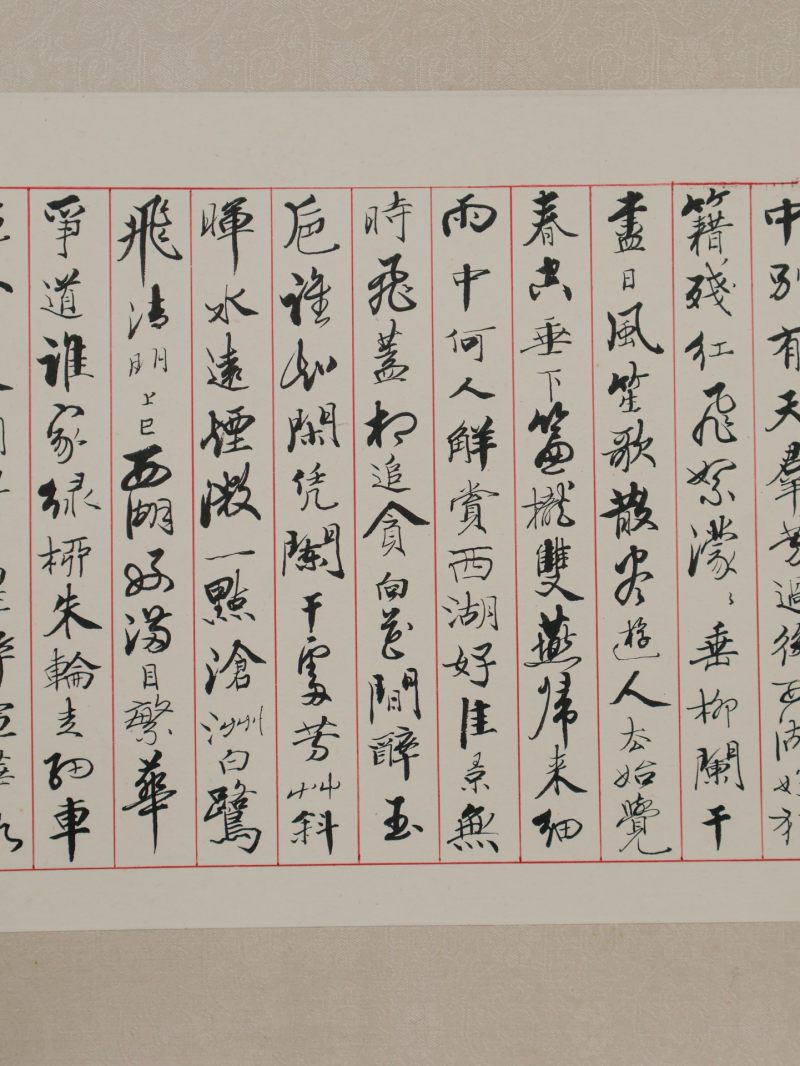 中別有天羣芳過後西湖好
籍殘紅飛絮濛々垂柳闌干
盡日風笙歌散盡遊人去始覺
春空垂下簾櫳雙燕歸來細
雨中何人解賞西湖好佳景無
時飛蓋相追貪向花間醉玉
巵誰知閑凭闌干處芳艸斜
暉水遠煙微一點滄洲白鷺
飛清明上巳西湖好滿目繁華
爭道誰家綠柳朱輪走鈿車